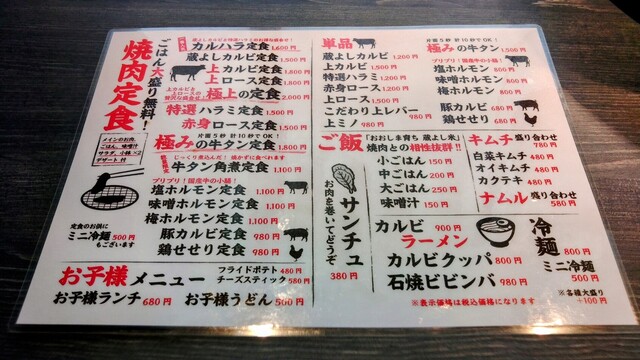 焼肉定食
ごはん大盛り無料!
メインのお肉、
ごはん、味噌汁
サラダ、小鉢×2
デザート 付
蔵よしカルビとハラミのお得な盛合せ!
カルハラ定食 1,600円
蔵よしカルビ定食 1,500円
上カルビ定食 1,500円
上ロース定食 1,800円
上カルビと
上ロースの
贅沢な盛合せ!
極上の定食 2,000円
特選ハラミ定食 1,500円
赤身ロース定食 1,500円
片面5秒 計10秒でOK!
極みの牛タン定食 1,800円
じっくり煮込んだ! 焼かずに食べれます
牛タン角煮定食 1,100円
プリプリ!国産牛の小腸!
塩ホルモン定食 1,100円
味噌ホルモン定食 1,100円
梅ホルモン定食 1,100円
豚カルビ定食 980円
鶏せせり定食 980円
定食のお供に
ミニ冷麺 500円
もございます
お子様メニュー
フライドポテト 480円
チーズスティック 580円
お子様ランチ 680円
お子様うどん 500円
単品
蔵よしカルビ 1,200円
上カルビ 1,200円
特選ハラミ 1,200円
赤身ロース 1,200円
上ロース 1,500円
こだわり上レバー 980円
上ミノ 980円
片面5秒 計10秒でOK!
極みの牛タン 1,500円
プリプリ!国産牛の小腸!
塩ホルモン 800円
味噌ホルモン 800円
梅ホルモン 800円
豚カルビ 680円
鶏せせり 680円
ご飯
「おおしま育ち 蔵よし米」
焼肉との相性抜群!!
小ごはん 150円
中ごはん 200円
大ごはん 250円
味噌汁 150円
サンチュ
お肉を巻いてどうぞ
380円
キムチ 盛り合わせ 780円
白菜キムチ 480円
オイキムチ 480円
カクテキ 480円
ナムル 盛り合わせ 580円
カルビラーメン 900円
カルビクッパ 800円
石焼ビビンバ 980円
冷麺 800円
ミニ冷麺 500円
※各種大盛り
+100円
※表示価格は税込価格になります